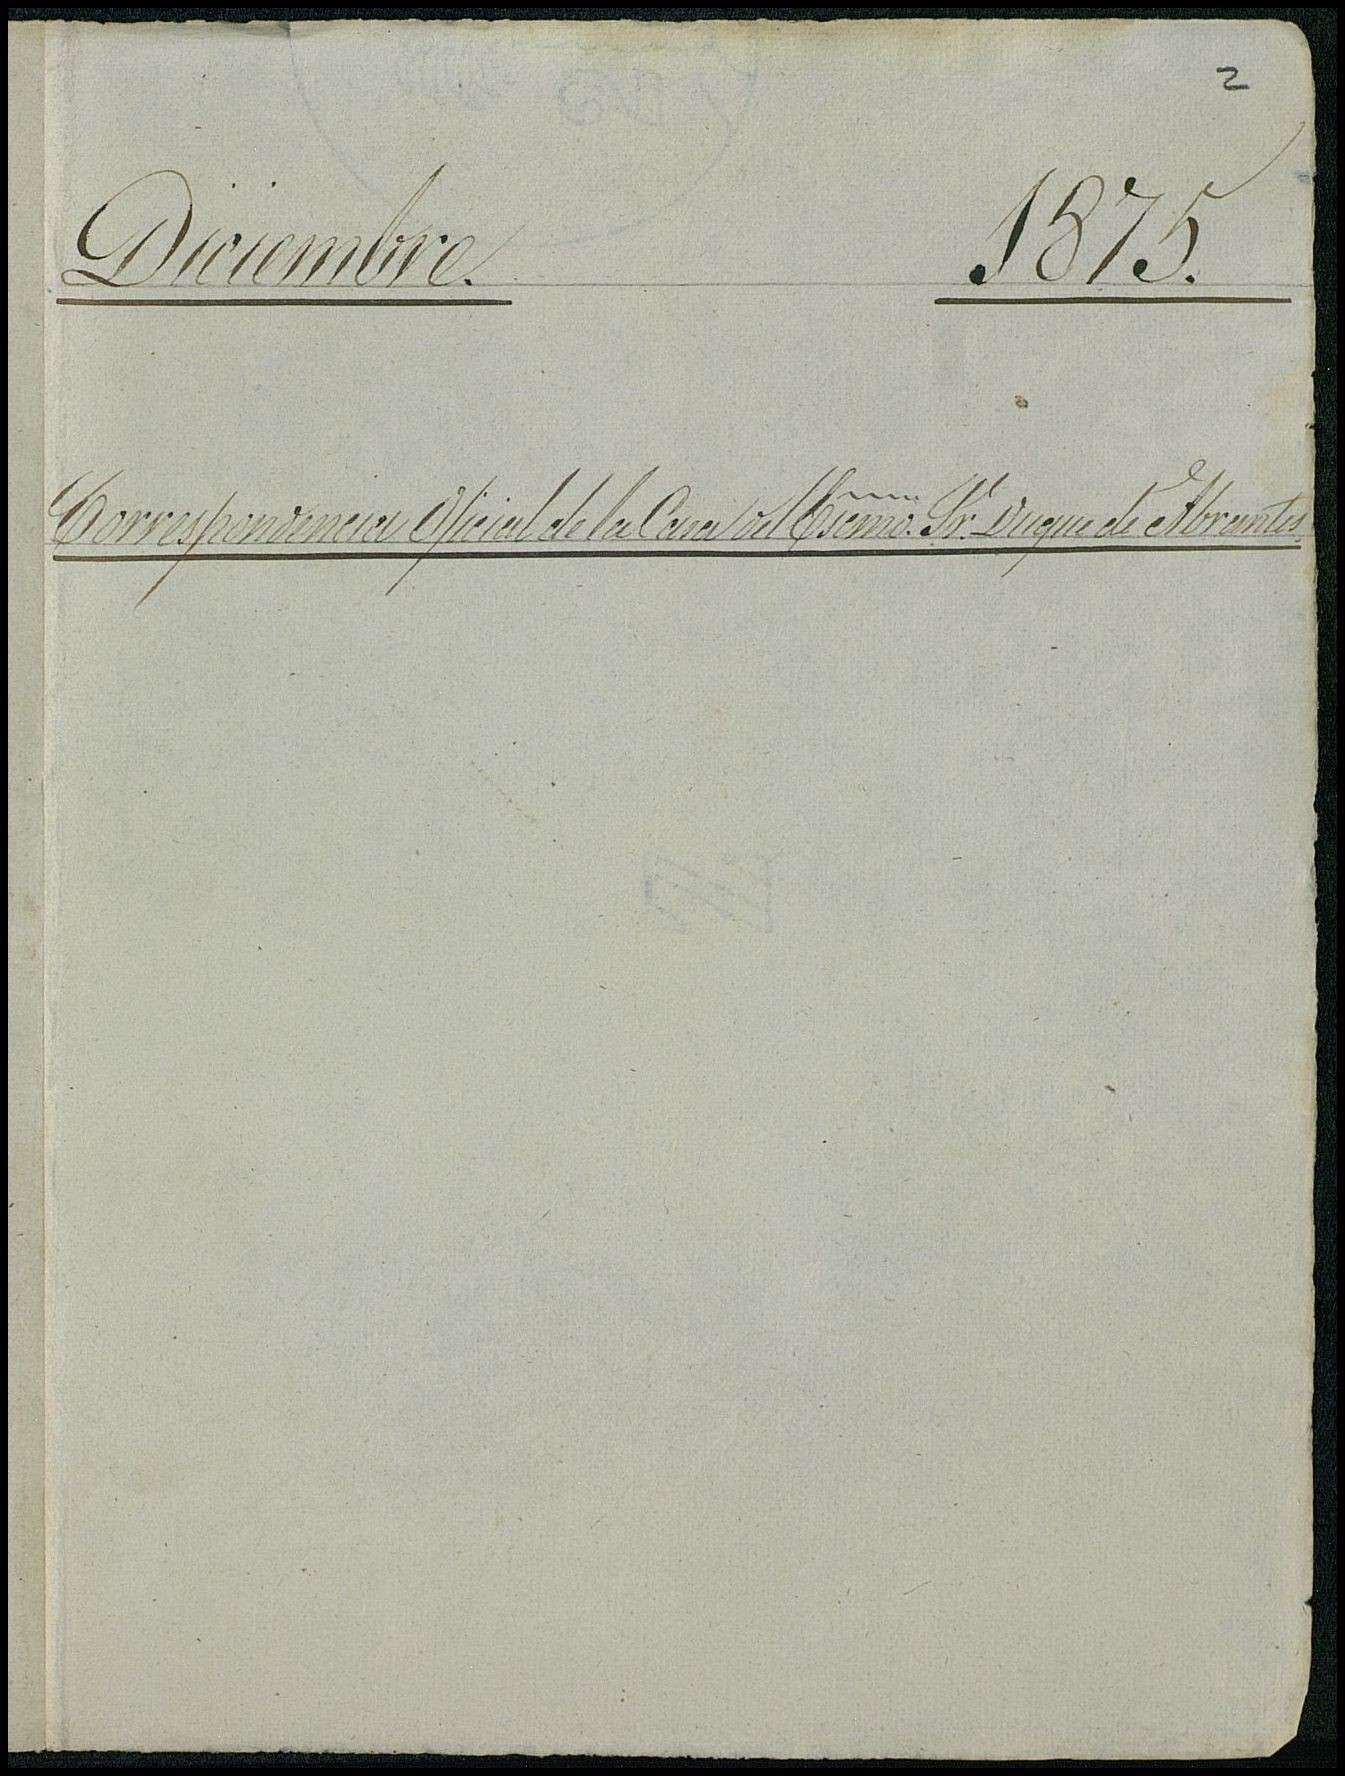 2
Diciembre. 1875.
Correspondencia Oficial de la Casa del Escmo. Sr. Duque de Abrantes.